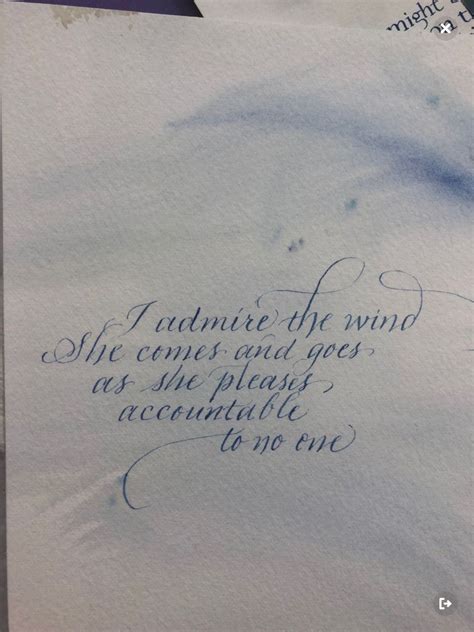 might
on t
I admire the wind
She comes and goes
as she pleases,
accountable
to no one